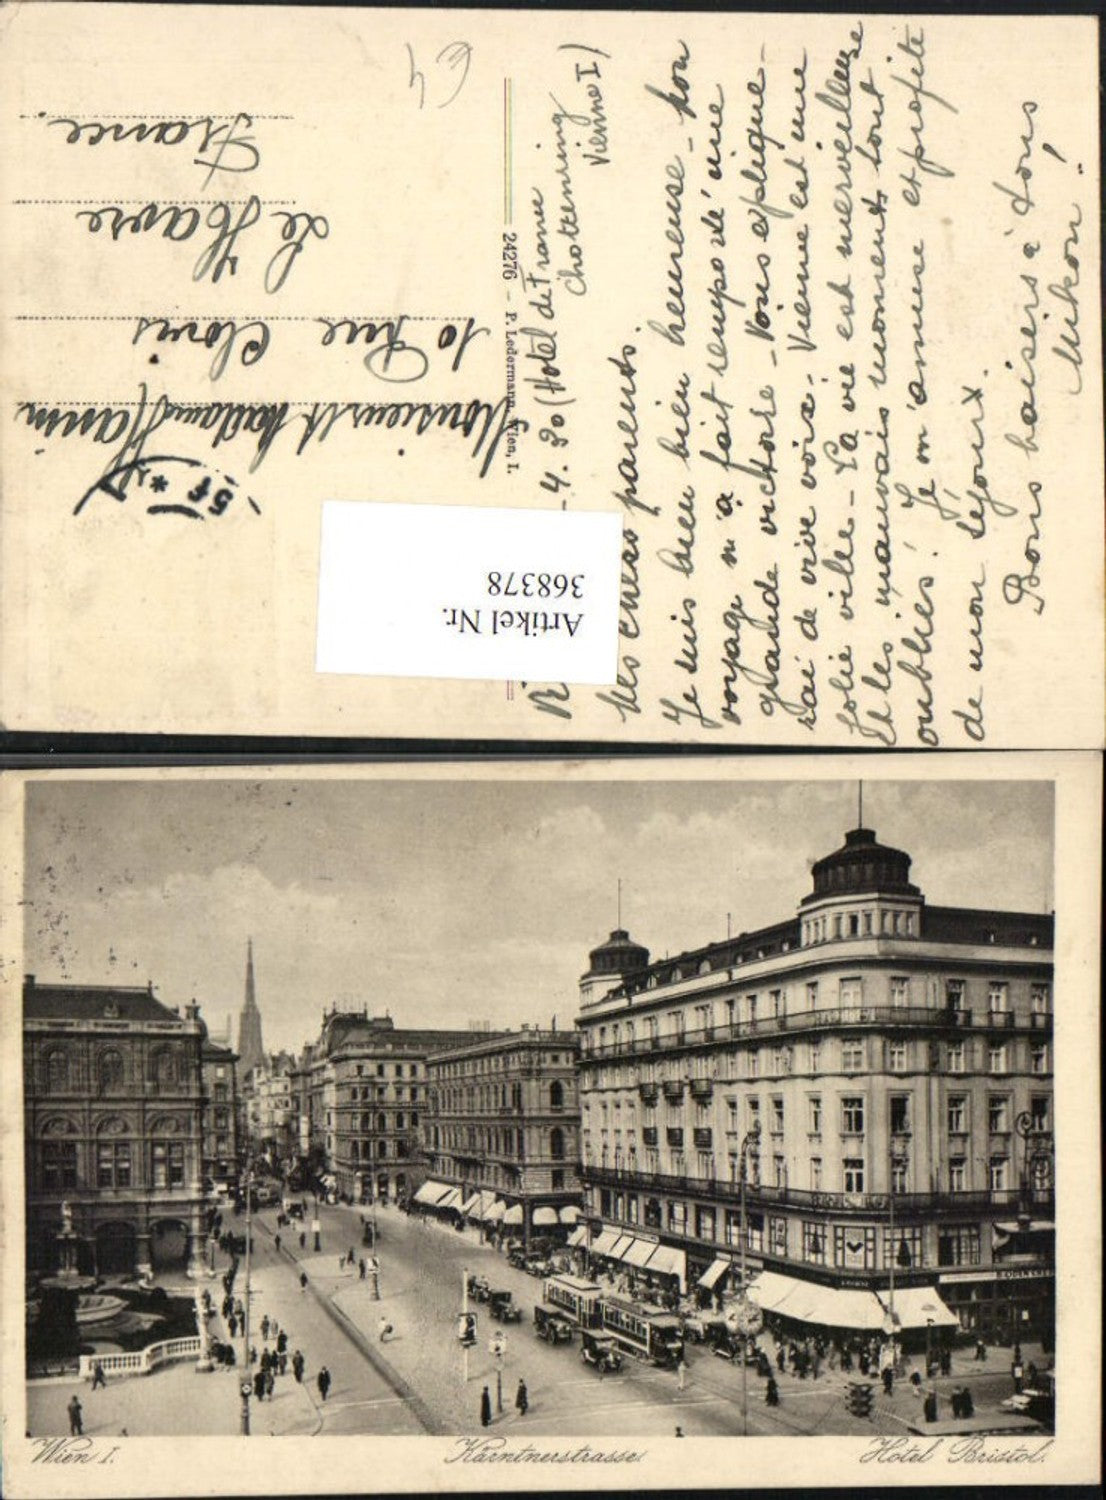 - 4. 30 (Hotel de France
Schottenring
Vienne I)
Mes chers parents.
Je suis bien bien heureuse - Mon
voyage m'a fait remporté une
grande victoire - Vous explique-
rai de vive voix. Vienne est une
jolie ville - La vie est merveilleuse
et les mauvais moments sont
oubliés! Je m'amuse et profite
de mon séjour.
Bons baisers à tous
24276 - P. Ledermann, Wien, I.
Monsieur et Madame
10 Rue Clovis
Le Havre
France.
Artikel Nr.
368378
Wien I.
Kärntnerstrasse.
Hotel Bristol.